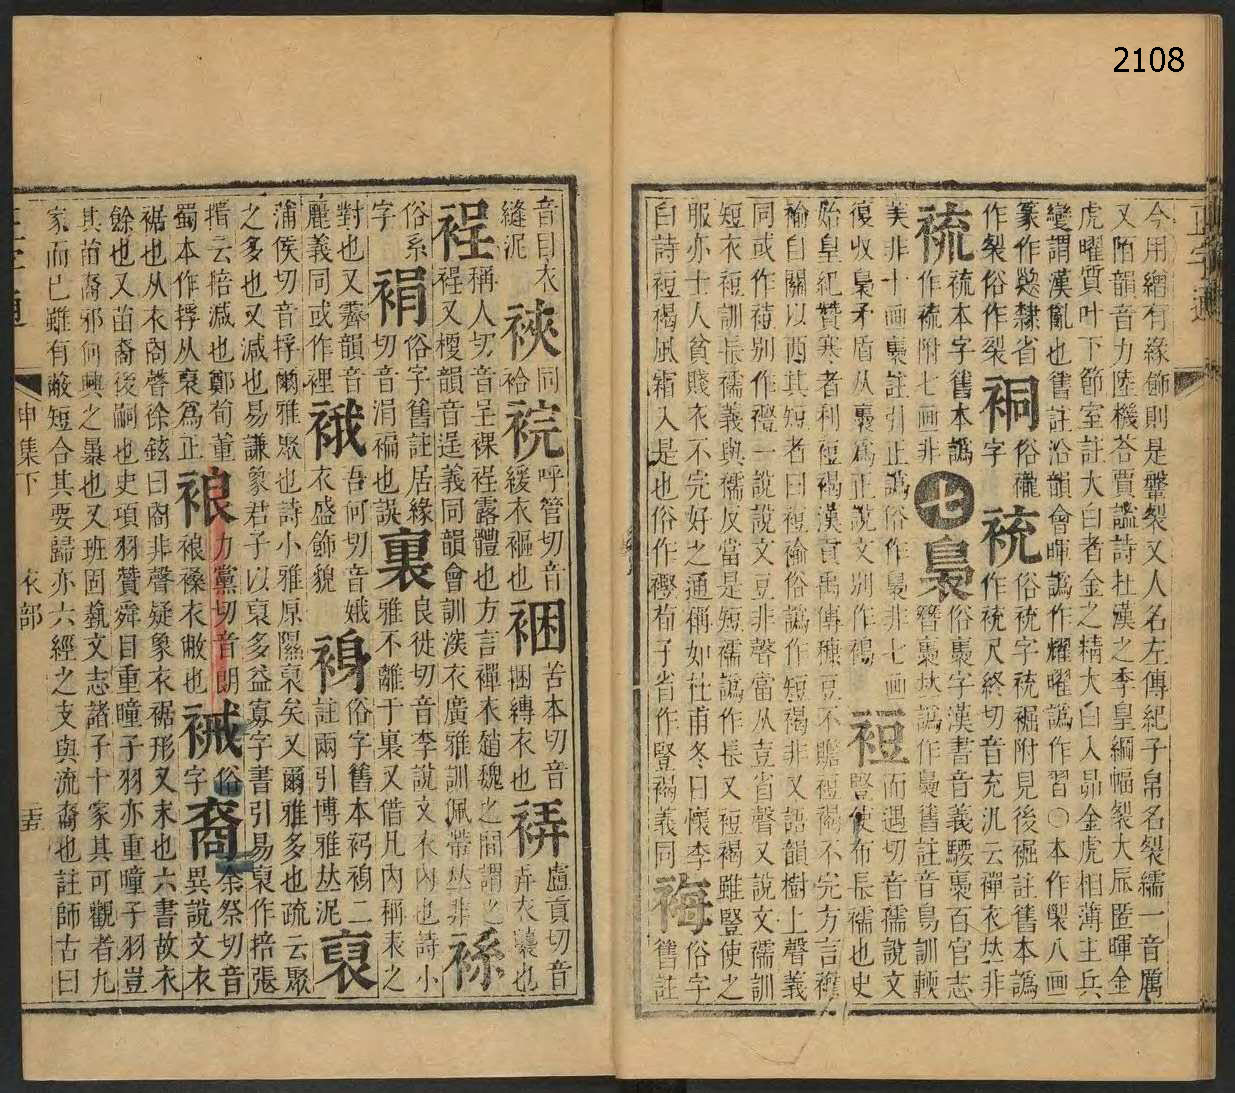 2108
正字通
今用繒有緣飾則是鞶裂又人名左傳紀子帛名裂繻一音厲
又陌韻音力陸機荅賈謐詩杜漢之季皇綱幅裂大辰匿暉金
虎曜質叶下節室註大白者金之精大白入昴金虎相薄主兵
變謂漢亂也舊註沿韻會暉譌作耀曜譌作習〇本作㓼八画
篆作隸省 袸字俗襱
作裂俗作裂 字 裗俗裗字裗裾附見後裾註舊本譌
作裗尺終切音充汎云襌衣𠀤非
裗裗本字舊本譌
作裗附七画非
七 裊俗褭字漢書音義騕褭百官志
簪褭𠀤譌作裊舊註音鳥訓輭
美非十画褭註引正譌俗作裊非七画
復收裊矛盾从褭爲正說文別作裊
裋而遇切音孺說文
豎使布長襦也史
始皇紀贊寒者利裋褐漢貢禹傳穅豆不贍裋褐不完方言襜
褕自關以西其短者曰裋褕俗譌作短褐非又語韻樹上聲義
同或作䘽別作禮一說說文豆非聲當从壴省聲又說文襦訓
短衣裋訓長襦義與襦反當是短襦譌作長又裋褐雖豎使之
服亦士人貧賤衣不完好之通稱如杜甫冬日懷李
白詩裋褐風霜入是也俗作䙔荀子省作豎褐義同
䋣俗字
舊註
音目衣
縫泥 裌同袷 䘼呼管切音
緩衣襱也 裍苦本切音
捆縛衣也 𧚅盧貢切音
弄衣𧞬也
裎稱人切音呈裸裎露體也方言襌衣趙魏之間謂之
裎又梗韻音逞義同韻會訓淡衣廣雅訓佩帶𠀤非
䙂俗系
字 裐俗字舊註居緣
切音涓褊也誤 裏良徙切音李說文衣內也詩小
雅不離于裏又借凡內稱表之
對也又霽韻音
麗義同或作裡 䘸吾何切音娥
衣盛飾貌 裑俗字舊本裑䘽二
註兩引博雅𠀤泥 裒
蒲侯切音捊爾雅聚也詩小雅原隰裒矣又爾雅多也疏云聚
之多也又減也易謙象君子以裒多益寡字書引易裒作掊張
揖云掊減也鄭荀董
蜀本作捊从裒爲正 𧚅力黨切音朗
𧚅襙衣敝也 裓俗
字 裔余祭切音
異說文衣
裾也从衣㕯聲徐鉉曰㕯非聲疑象衣裾形又末也六書故衣
餘也又苗裔後嗣也史項羽贊舜目重瞳子羽亦重瞳子羽豈
其苗裔邪何興之暴也又班固藝文志諸子十家其可觀者九
家而已雖有蔽短合其要歸亦六經之支與流裔也註師古曰
正字通
申集下 衣部